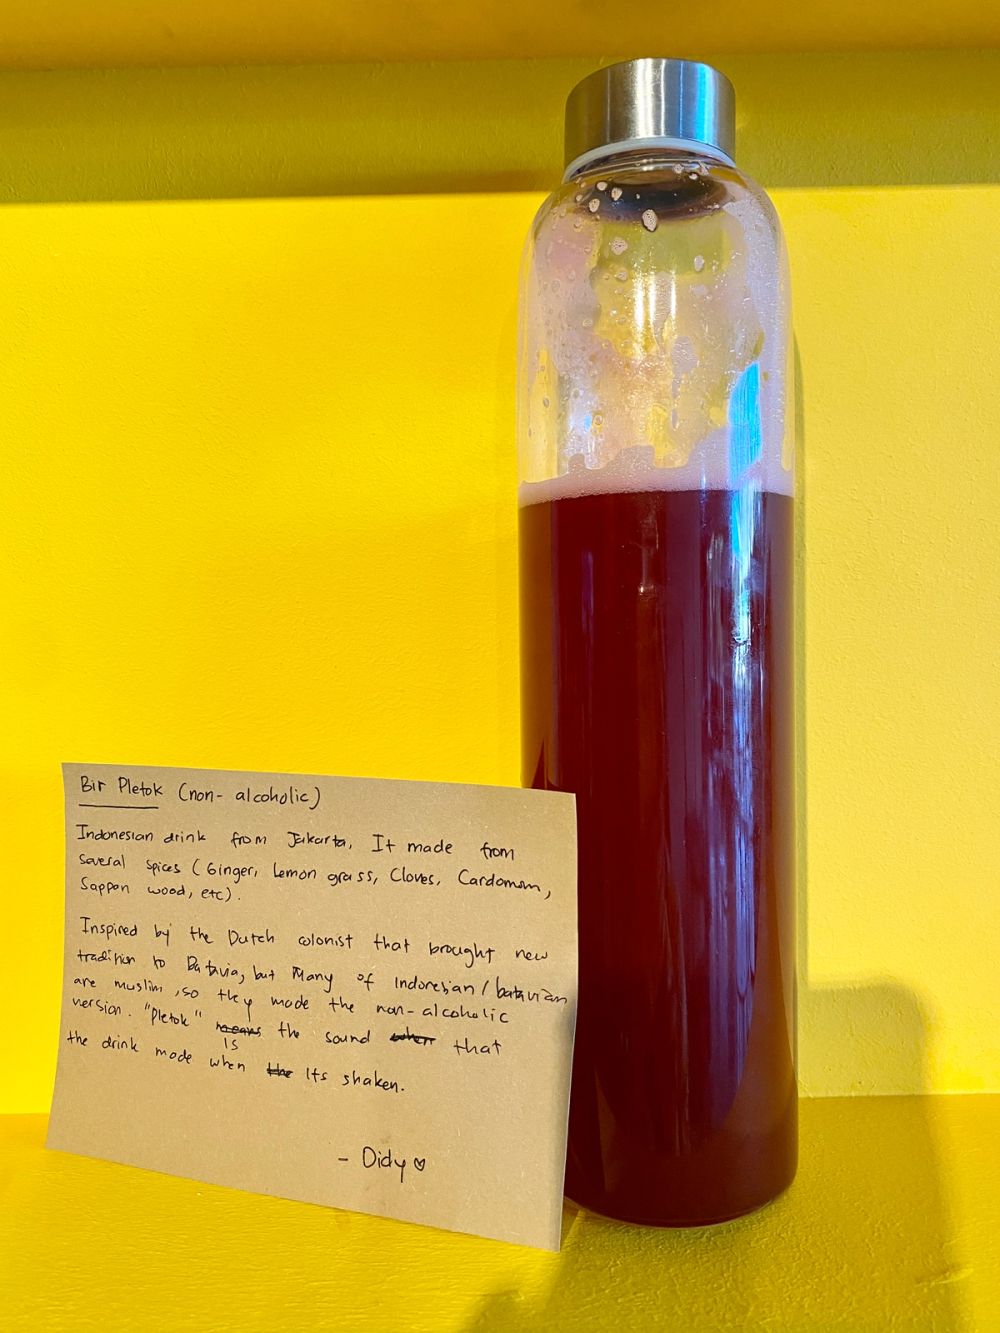 Bir Pletok (non-alcoholic)
Indonesian drink from Jakarta, It made from
several spices (Ginger, Lemon grass, Cloves, Cardomom,
Sappan wood, etc).
Inspired by the Dutch colonist that brought new
tradition to Batavia, but Many of Indonesian/batavian
are muslim, so they made the non-alcoholic
version. "Pletok" means the sound when that
is
the drink made when the Its shaken.
- Didy ♡